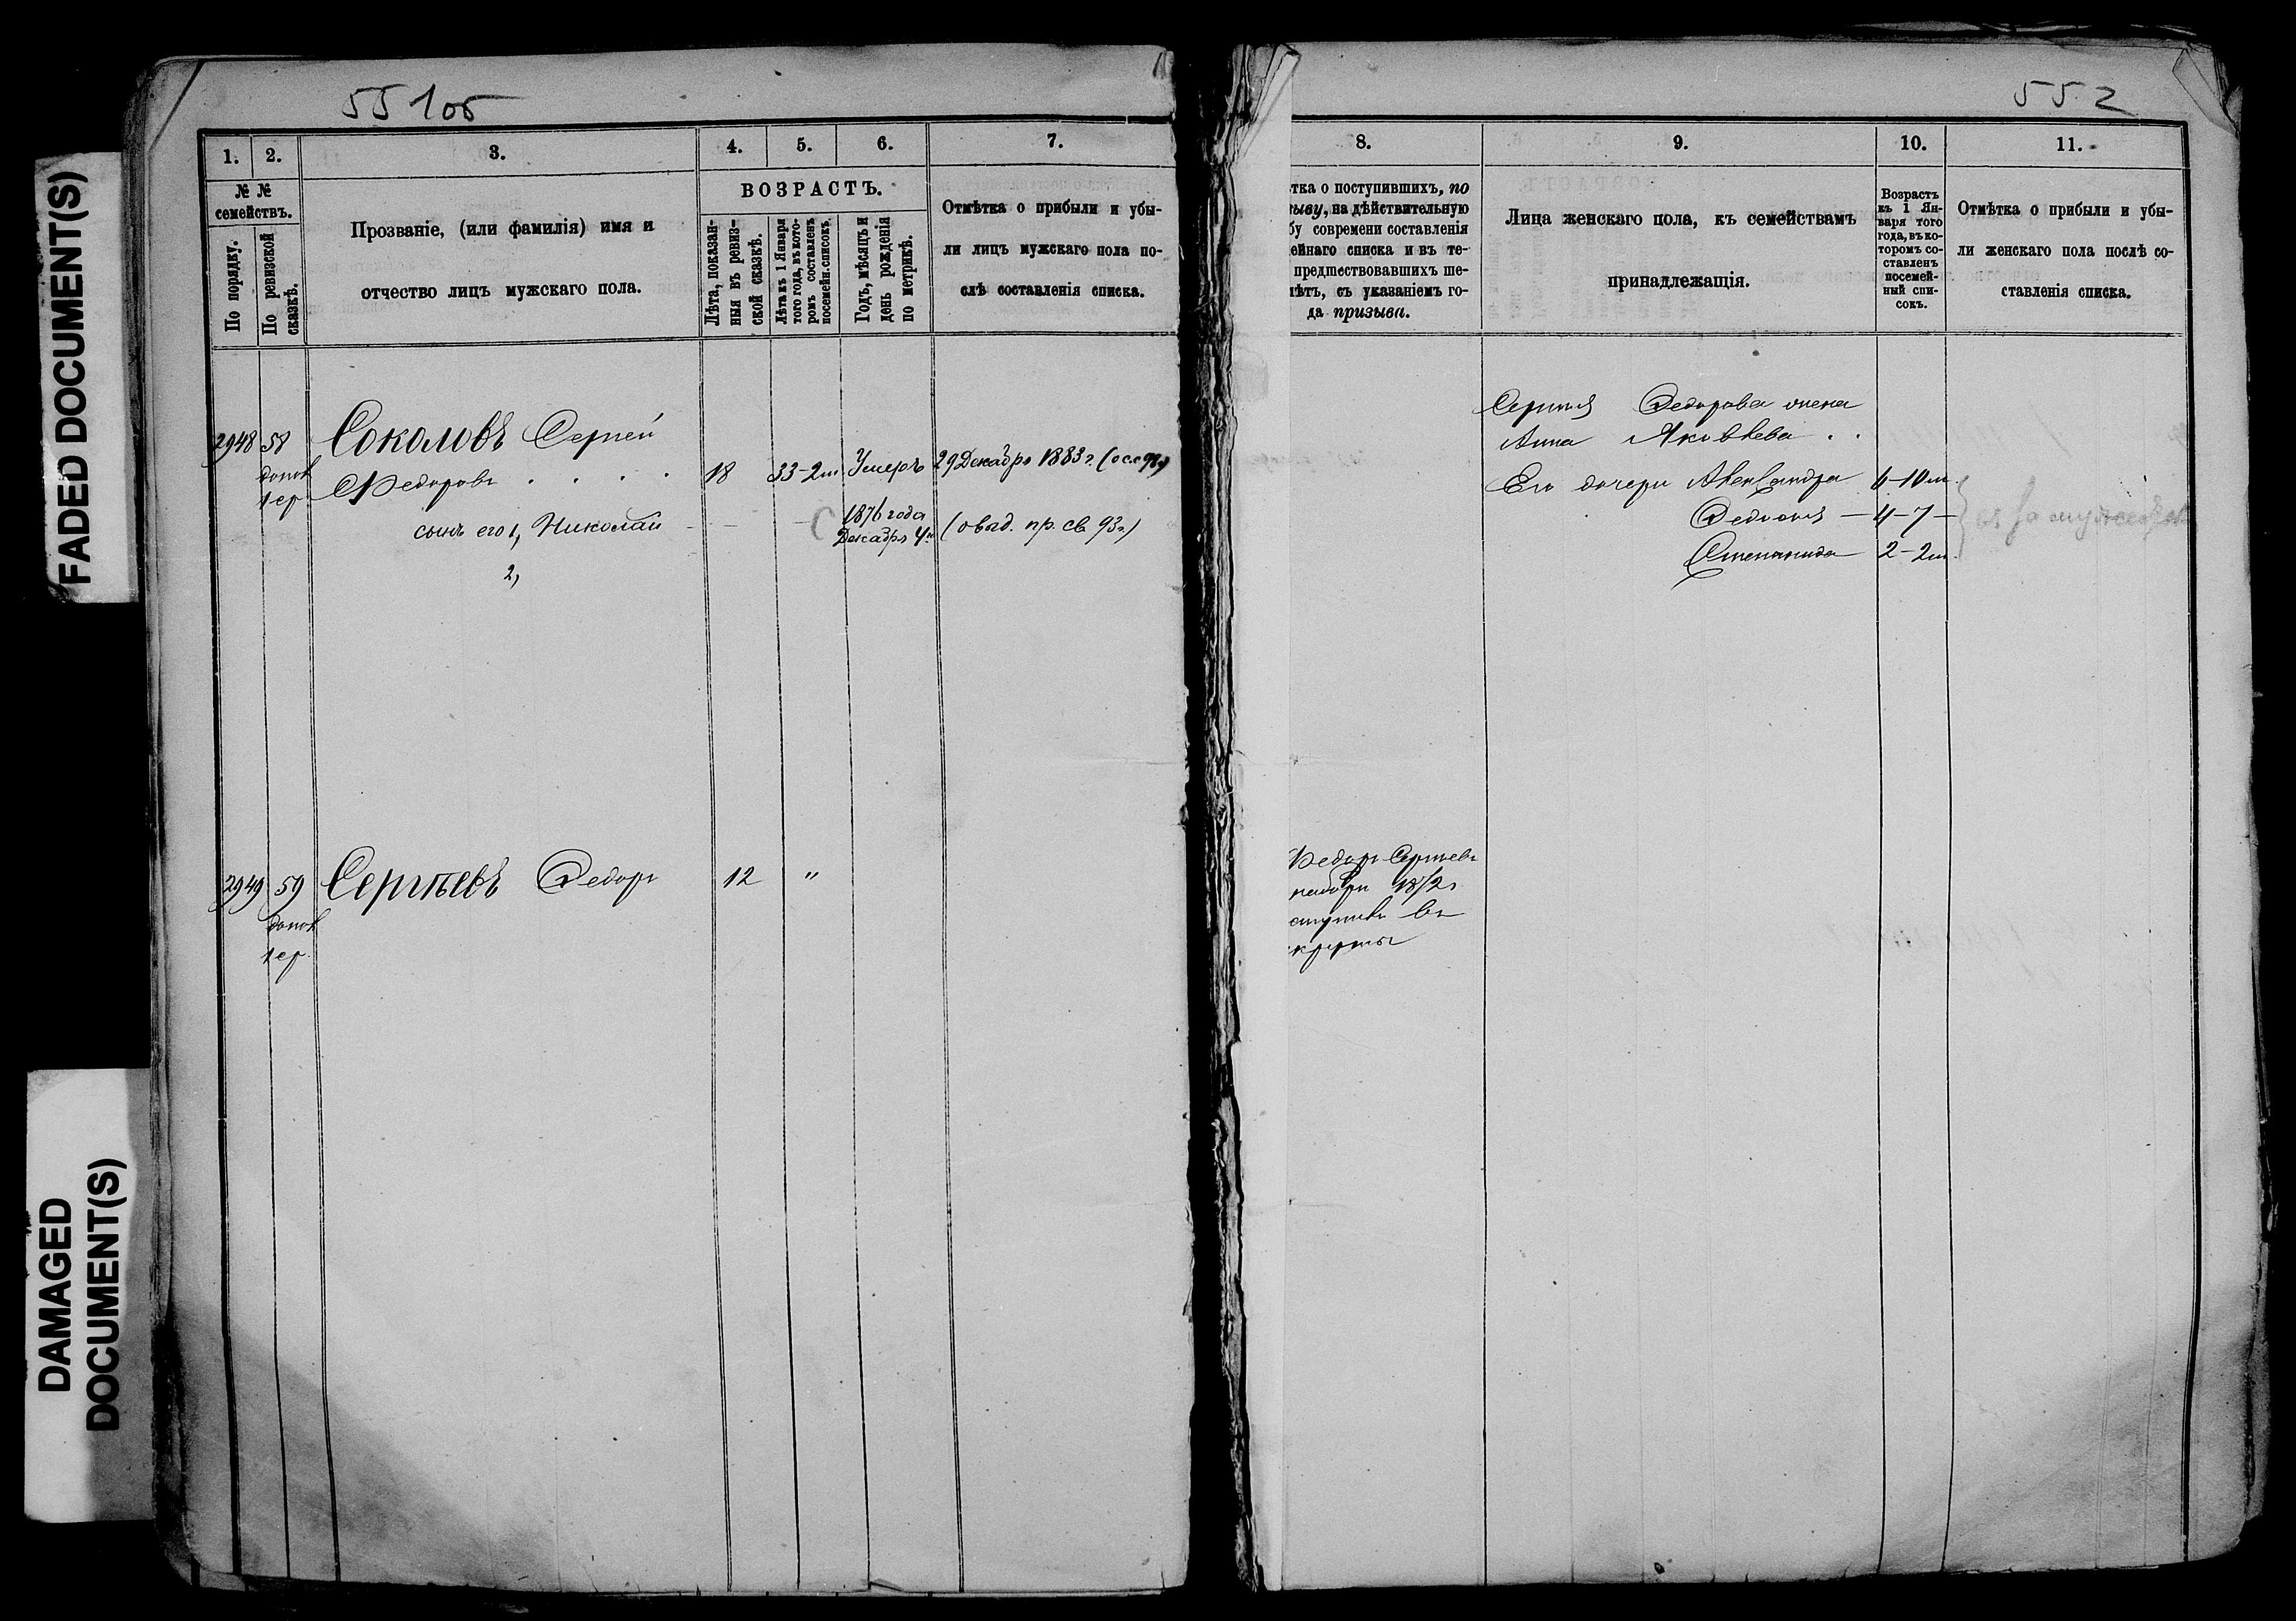 FADED DOCUMENT(S)
DAMAGED
DOCUMENT(S)
551об
552
1.
2.
3.
4.
5.
6.
7.
№ №
семействъ.
По порядку.
По ревизской
сказкѣ.
Прозваніе, (или фамилія) имя и
отчество лицъ мужскаго пола.
ВОЗРАСТЪ.
Лѣта, показан-
ныя въ ревиз-
ской сказкѣ.
Лѣта къ 1 Января
того года, въ кото-
ромъ составленъ
посемейн. списокъ.
Годъ, мѣсяцъ и
день рожденія
по метрикѣ.
Отмѣтка о прибыли и убы-
ли лицъ мужскаго пола по-
слѣ составленія списка.
2948 58 Соколовъ Сергей
допол
1 ер Федоровъ . . . . 18 33-2м Умеръ 29 Декабря 1883 г.
сынъ его 1, Николай
1876 года
Декабря 4го
(овыд. пр. св. 93г)
2,
2949 59 Сергѣевъ Федоръ 12 "
допол
1 ер.
8.
9.
10.
11.
тка о поступившихъ, по
ыву, на дѣйствительную
бу современи составленія
ейнаго списка и въ те-
предшествовавшихъ ше-
лѣтъ, съ указаніемъ го-
да призыва.
Лица женскаго пола, къ семействамъ
принадлежащія.
Возрастъ
къ 1 Ян-
варя того
года, въ ко-
торомъ со-
ставленъ
посемей-
ный спи-
сокъ.
Отмѣтка о прибыли и убы-
ли женскаго пола послѣ со-
ставленія списка.
Сергея Федорова жена
Анна Яковлева . .
Его дочери Александра 6-10м.
Федосия — 4-7-
Степанида 2-2м.
Федоръ Сергеевъ
наборъ 1872г
ступилъ въ
крруты